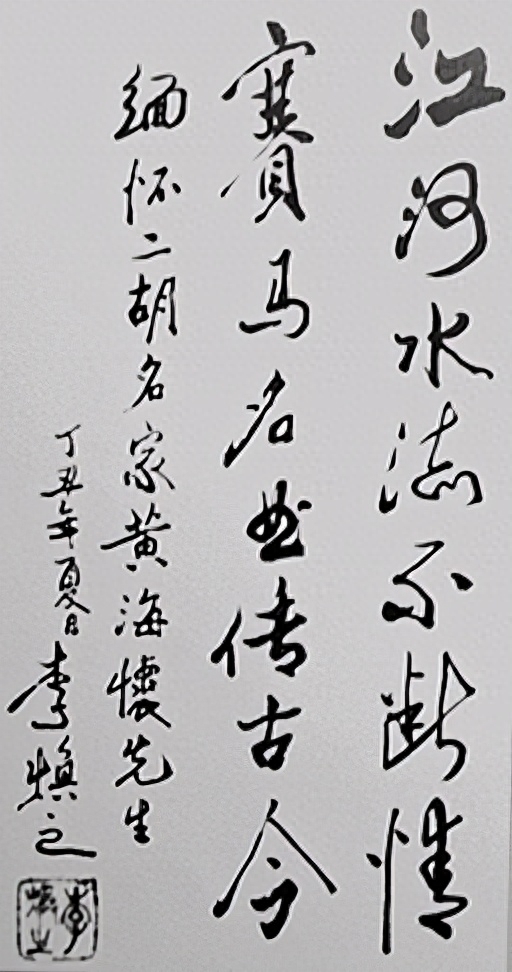 江河水流不断情
賽马名曲传古今
缅怀二胡名家黄海懷先生
丁丑年夏日 李焕之
李焕之